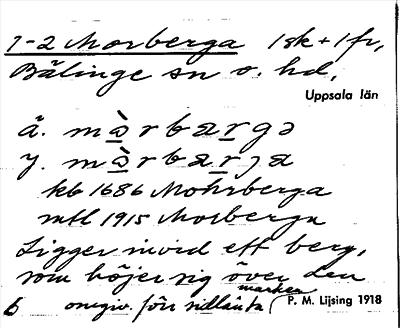 1-2 Morberga 1 sk + 1 fr,
Bälinge sn o. hd,
Uppsala län
ä. màrbargə
y. màrbarja
kb 1686 Mohrberga
mtl 1915 Morberga
Ligger invid ett berg,
som höjer sig över den
omgiv. för sidlänta marken
P. M. Lijsing 1918